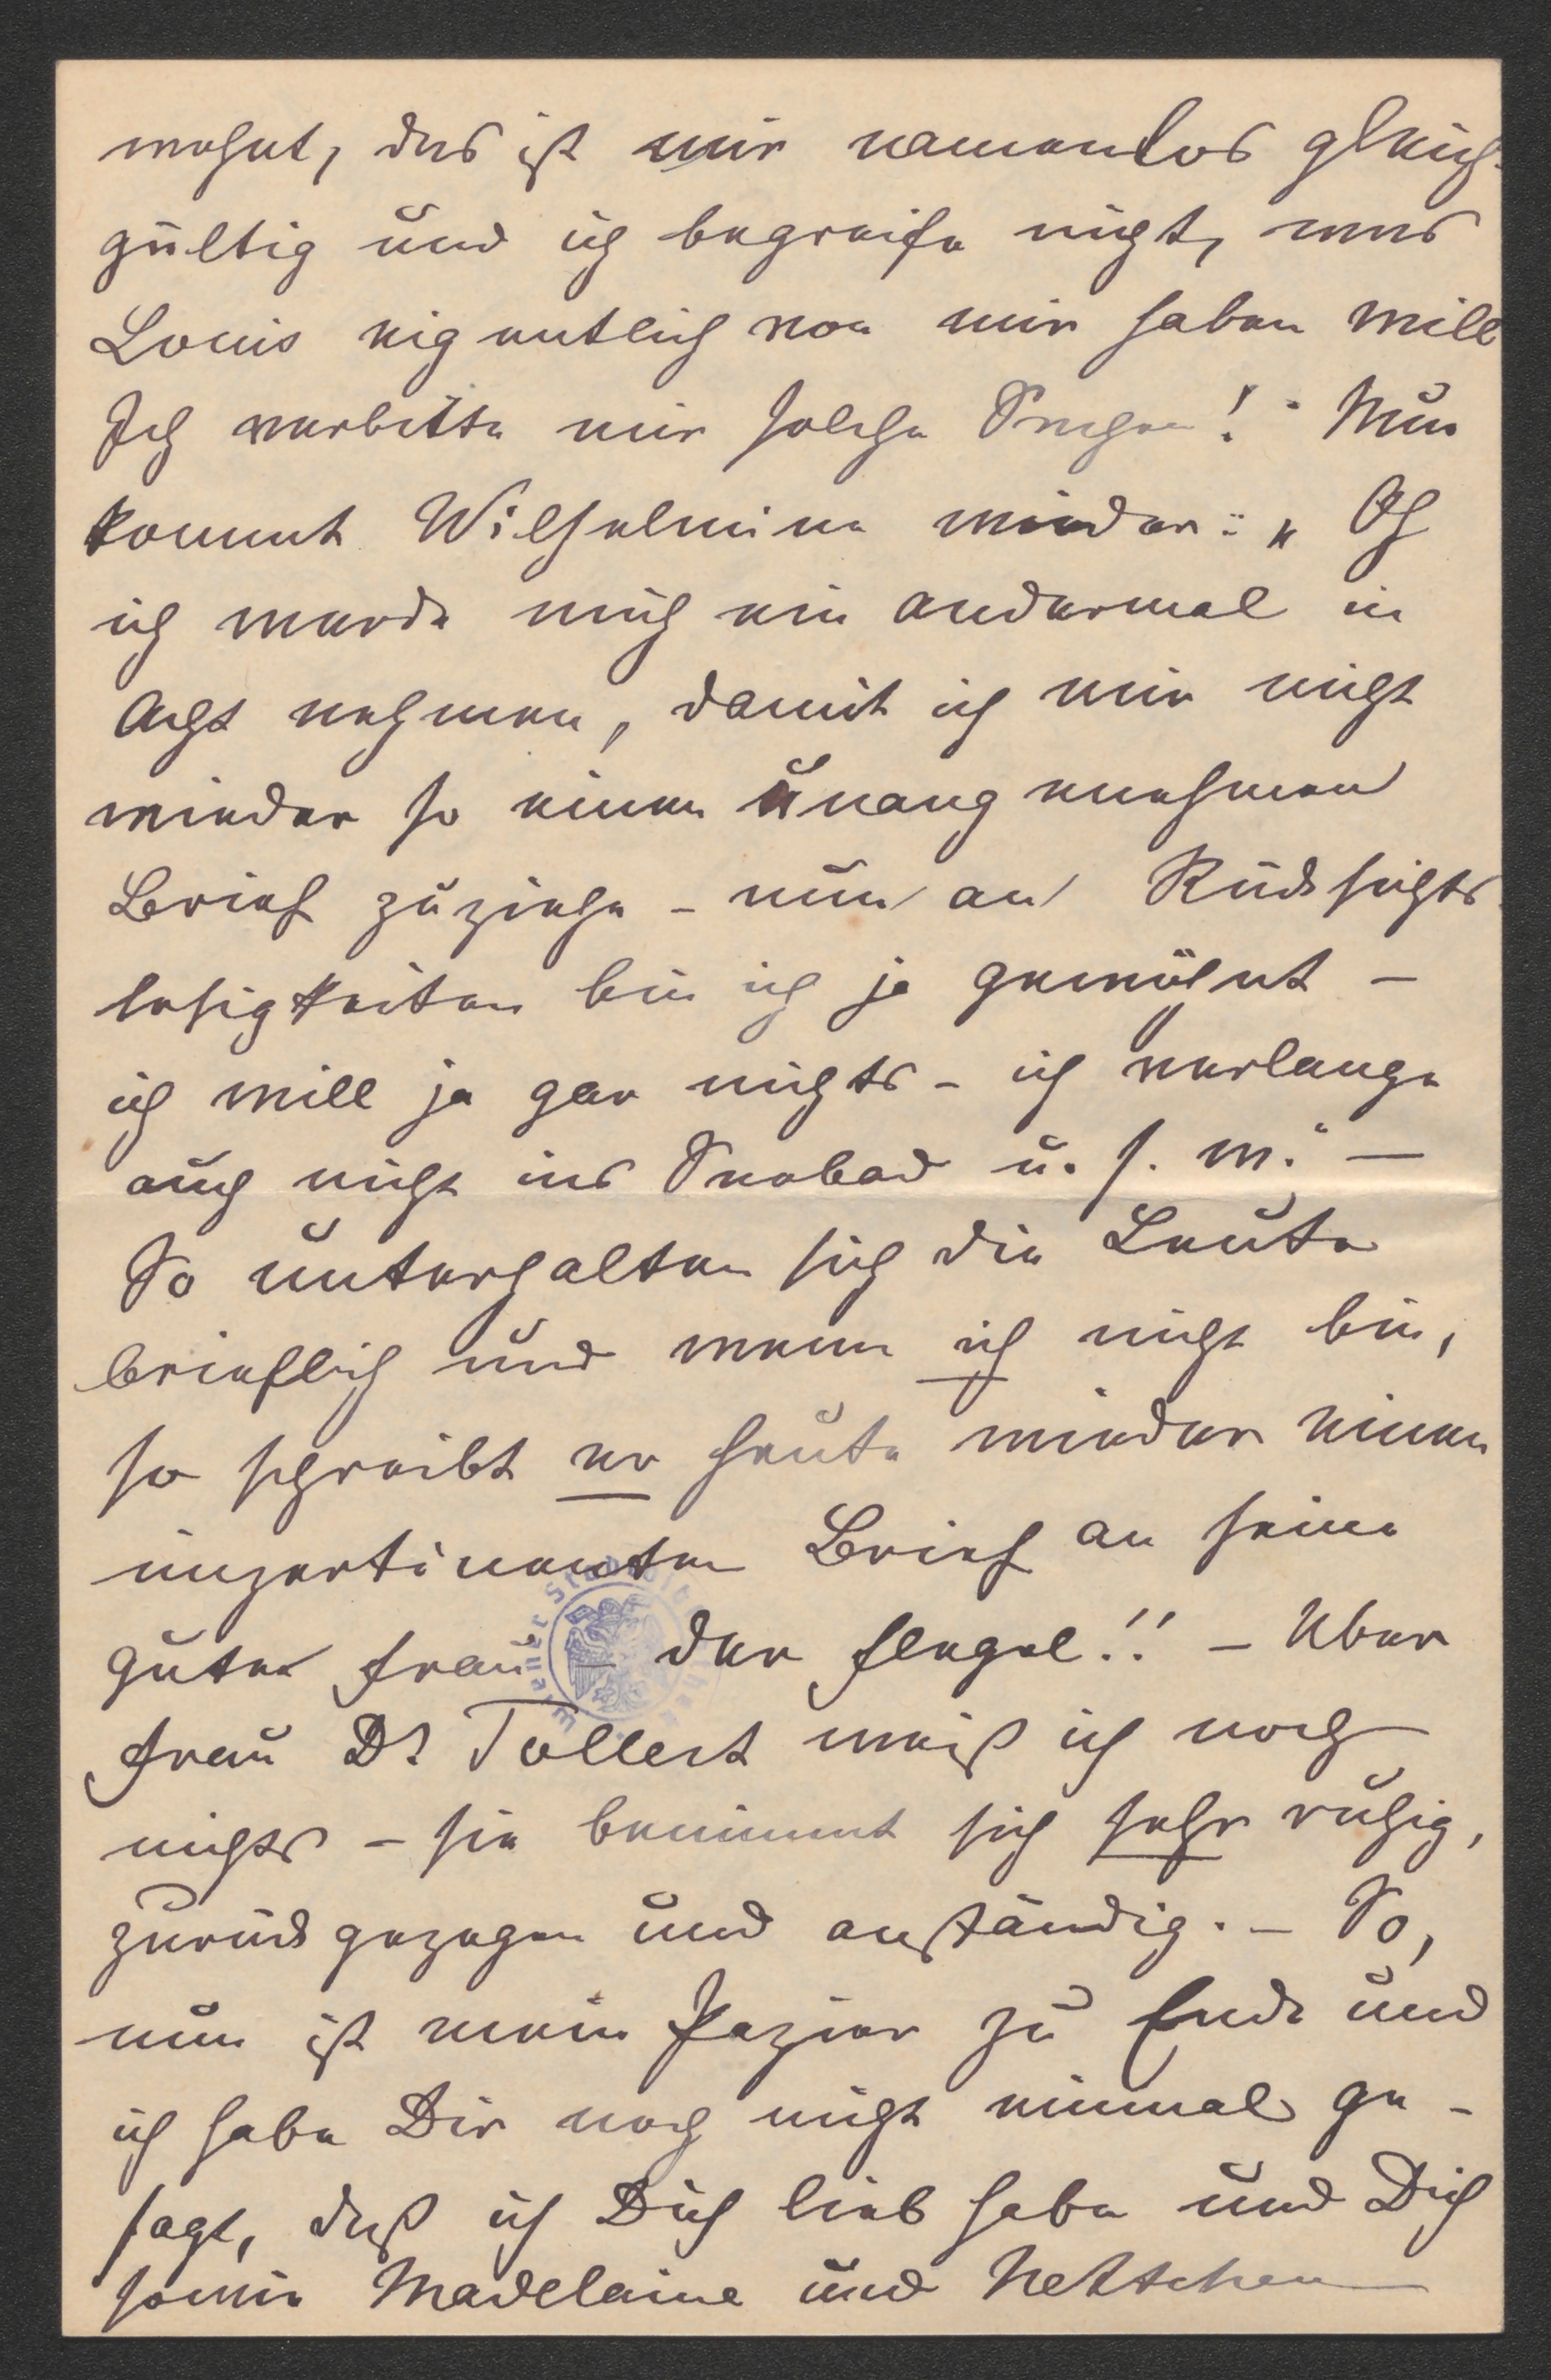 wohnt, das ist mir namenlos gleich-
gültig und ich begreife nicht, was
Louis eigentlich von mir haben will
Ich verbitte mir solche Sachen!" Nun
kommt Wilhelmine wieder: „Ach
ich werde mich ein andermal in
Acht nehmen, damit ich mir nicht
wieder so einen unangenehmen
Brief zuziehe - nun an Rücksichts-
losigkeiten bin ich ja gewöhnt -
ich will ja gar nichts - ich verlange
auch nicht ins Seebad u. s. w." -
So unterhalten sich die Leute
brieflich und wenn ich nicht bin,
so schreibt er heute wieder einen
impertinenten Brief an seine
gute Frau - der Flegel!! - Über
Frau Dr Tollert weiß ich noch
nichts - sie benimmt sich sehr ruhig,
zurückgezogen und anständig. - So,
nun ist mein Papier zu Ende und
ich habe Dir noch nicht einmal ge-
sagt, daß ich Dich lieb habe und Dich
sowie Madelaine und Nettchen